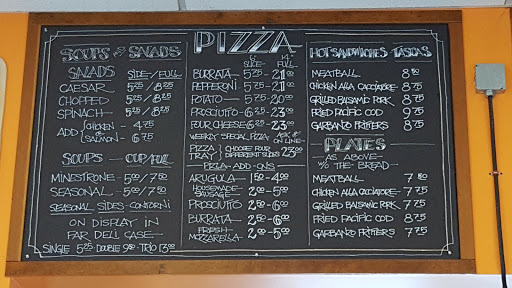 SOUPS and SALADS
SALADS SIDE/FULL
CAESAR 5.25/8.25
CHOPPED 5.25/8.25
SPINACH 5.75/8.75
ADD CHICKEN - 4.75
SALMON - 6.75
SOUPS - CUP/FULL
MINESTRONE - 5.00/7.50
SEASONAL - 5.00/7.50
SEASONAL SIDES - CONTORNI
ON DISPLAY IN
FAR DELI CASE
SINGLE 5.25 - DOUBLE 9.50 - TRIO 13.00
PIZZA
SLICE FULL
BURRATA - 5.75 - 21.00
PEPPERONI - 5.25 - 21.00
POTATO - 5.25 - 20.00
PROSCIUTTO - 6.25 - 23.00
FOUR CHEESE - 6.25 - 23.00
WEEKLY SPECIAL PIZZA - ASK IF ON LINE -
PIZZA TRAY CHOOSE FOUR DIFFERENT SLICES 23.00
PIZZA ADD-ONS
ARUGULA 1.50 - 4.00
HOUSEMADE SAUSAGE 2.00 - 5.00
PROSCIUTTO 2.50 - 6.00
BURRATA - 2.50 - 6.00
FRESH MOZZARELLA 2.00 - 5.00
HOT SANDWICHES TASCAS
MEATBALL 8.50
CHICKEN ALLA CACCIATORE 8.75
GRILLED BALSAMIC PORK 8.75
FRIED PACIFIC COD 9.75
GARBANZO FRITTERS 8.75
PLATES
AS ABOVE -
W/O THE - BREAD -
MEATBALL 7.50
CHICKEN ALLA CACCIATORE 7.75
GRILLED BALSAMIC PORK 7.75
FRIED PACIFIC COD 8.75
GARBANZO FRITTERS 7.75